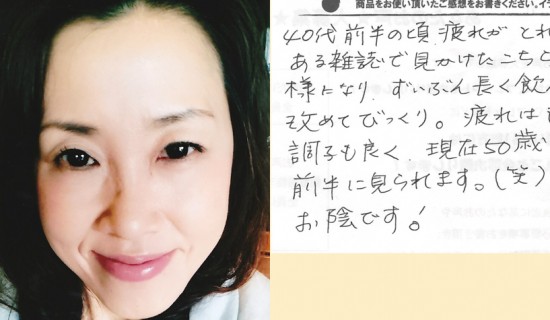 商品をお使い頂いたご感想をお書きください。イラ
40代前半の頃、疲れがとれ
ある雑誌で見かけたこちら
様になり、ずいぶん長く飲ん
改めてびっくり。疲れは
調子も良く 現在50歳
前半に見られます。(笑)
お陰です!